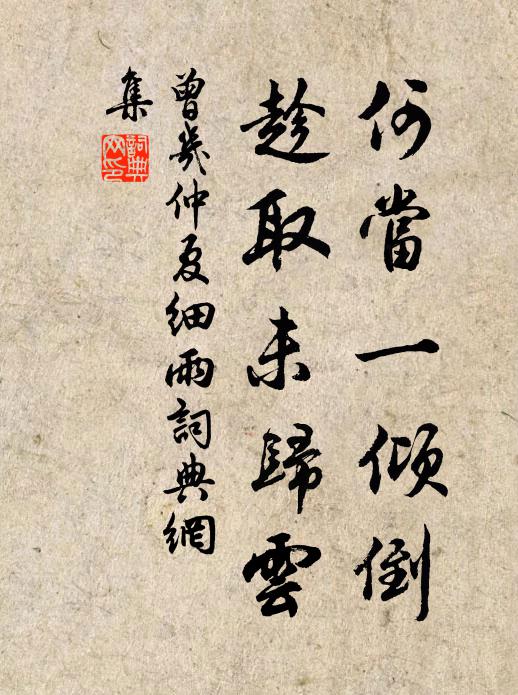 何當一傾倒
趁取未歸雲
曾幾仲夏細雨詞典網
集
詞典网印